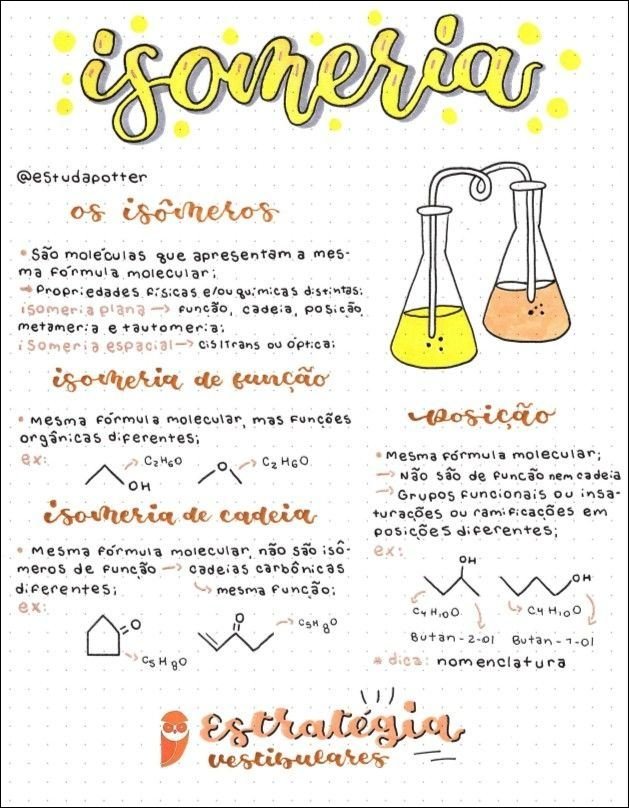 isomeria
@estudapotter
os isômeros
• São moléculas que apresentam a mes-
ma fórmula molecular;
→ Propriedades físicas e/ou químicas distintas;
isomeria plana → função, cadeia, posição
metameria e tautomeria;
isomeria espacial → cis/trans ou óptica;
isomeria de função
• Mesma fórmula molecular, mas funções
orgânicas diferentes;
ex:
OH
→ C₂H₆O
O
→ C₂H₆O
isomeria de cadeia
• Mesma fórmula molecular, não são isô-
meros de função → cadeias carbônicas
diferentes; ↳ mesma função;
ex:
O
→ C₅H₈O
O
→ C₅H₈O
posição
• Mesma fórmula molecular;
→ Não são de função nem cadeia
→ Grupos funcionais ou insa-
turações ou ramificações em
posições diferentes;
ex:
OH
OH
C₄H₁₀O ↳ C₄H₁₀O
Butan-2-ol Butan-1-ol
* dica: nomenclatura
Estratégia
vestibulares